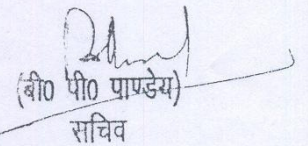 (बी0 पी0 पाण्डेय)
सचिव